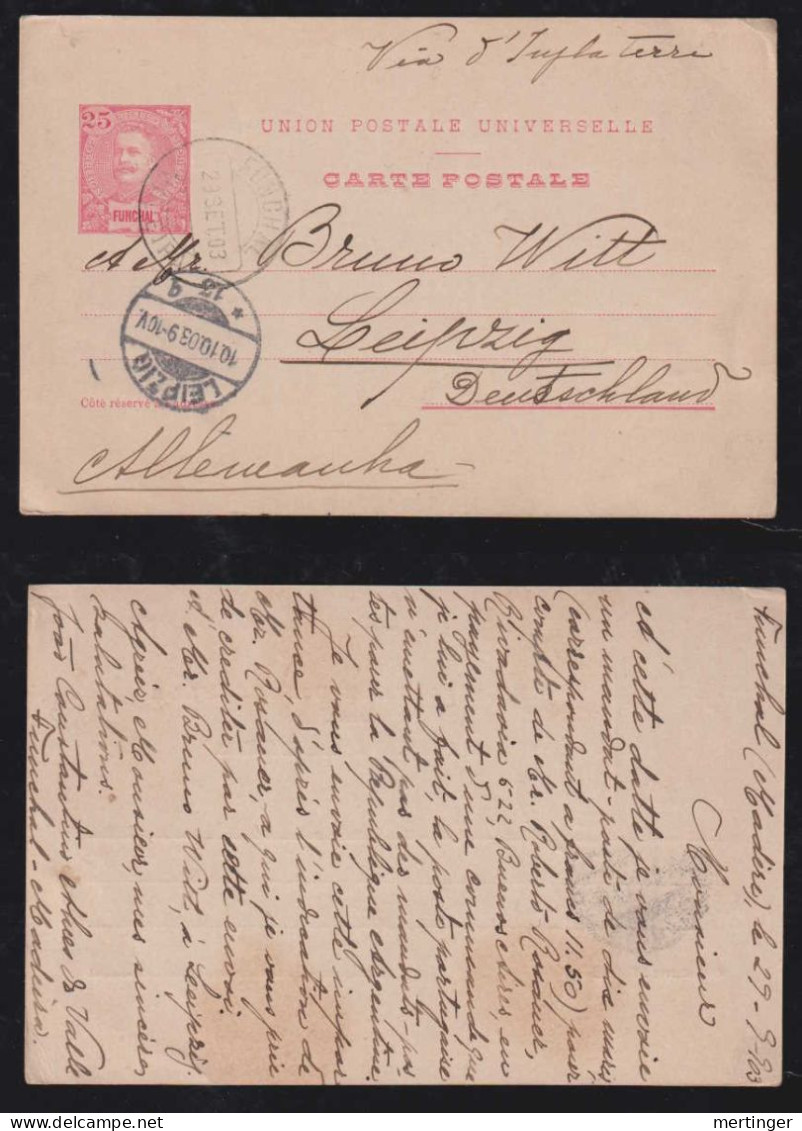 Via d'Inglaterre
25
UNION POSTALE UNIVERSELLE
CARTE POSTALE
FUNCHAL
FUNCHAL
29 SET. 03
A Mr. Bruno Witt
Leipzig
Deutschland
LEIPZIG
10.10.03.9-10V.
* 13 q
Côté réservé à
Allemanha
Funchal (Madère), le 29-9-903
Monsieur
A cette datte je vous envoie
un mandat-poste de dix mars,
(correspondant a francs 11.50) pour
compte de Mr. Roberto Rosauer,
Rivadavia 522 Buenos Aires en
payement d'une commande que
je lui a fait, la poste portugaise
n'émettant pas des mandats-pos
tes pour la République Argentine.
Je vous envoie cette impor
tance, d'après l'indication de
Mr. Rosauer, a qui je vous prie
de créditer par cette envoi.
A Mr. Bruno Witt, à Leipzig.
Agréz, Monsieur, mes sincères
salutations.
João Constantino Alves do Valle
Funchal-Madeira.
mertinger
www.delcampe.net